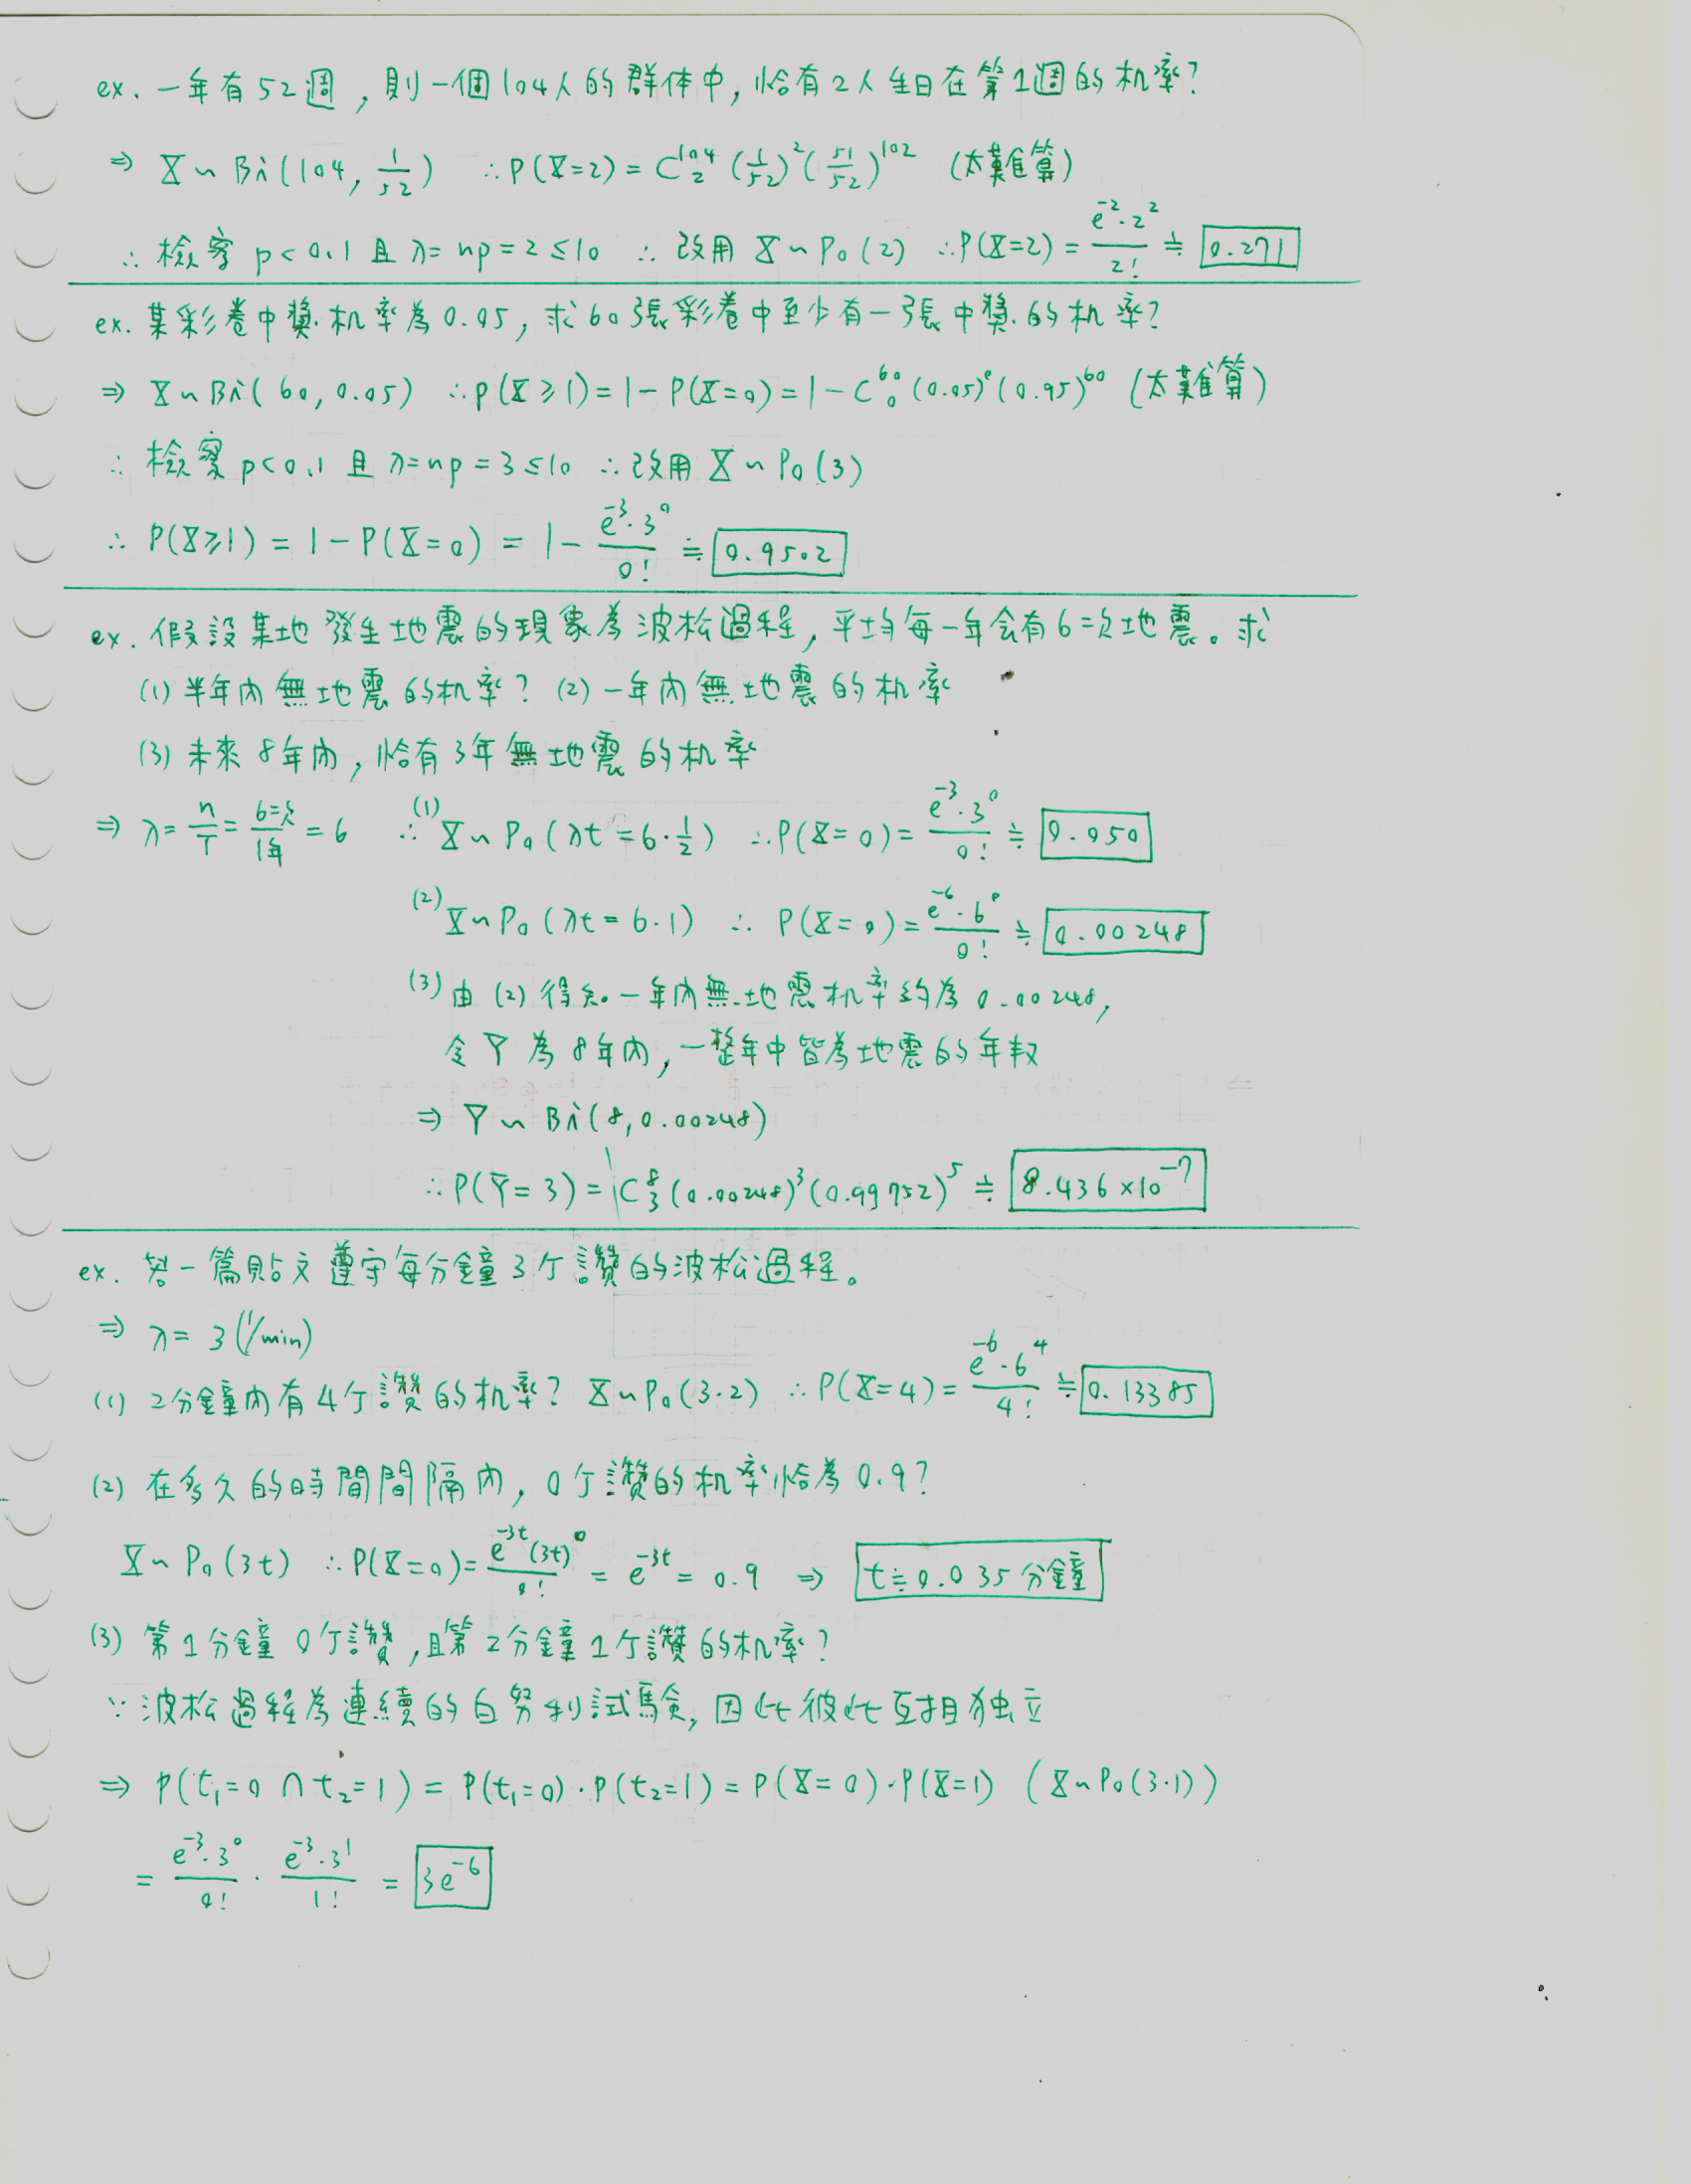 ex. 一年有52週，則一個104人的群体中，恰有2人生日在第1週的机率？
⇒ X ~ Bi(104, 1/52) ∴ P(X=2) = C^104_2 (1/52)^2 (51/52)^102 (太難算)
∴ 檢察 p<0.1 且 λ=np=2≤10 ∴ 改用 X ~ Po(2) ∴ P(X=2) = e^-2·2^2/2! ≒ 0.271
ex. 某彩卷中獎机率為0.05，求60張彩卷中至少有一張中獎的机率？
⇒ X ~ Bi(60, 0.05) ∴ p(X≥1) = 1-P(X=0) = 1-C^60_0 (0.05)^0 (0.95)^60 (太難算)
∴ 檢察 p<0.1 且 λ=np=3≤10 ∴ 改用 X ~ Po(3)
∴ P(X≥1) = 1-P(X=0) = 1- e^-3·3^0/0! ≒ 0.9502
ex. 假設某地發生地震的現象為波松過程，平均每一年会有6次地震。求
(1) 半年內無地震的机率？ (2) 一年內無地震的机率
(3) 未來8年內，恰有3年無地震的机率
⇒ λ = n/T = 6次/1年 = 6 ∴ (1) X ~ Po(λt = 6·1/2) ∴ P(X=0) = e^-3·3^0/0! ≒ 0.050
(2) X ~ Po(λt = 6·1) ∴ P(X=0) = e^-6·6^0/0! ≒ 0.00248
(3) 由(2)得知一年內無地震机率約為0.00248,
令Y為8年內，一整年中皆為地震的年数
⇒ Y ~ Bi(8, 0.00248)
∴ P(Y=3) = C^8_3 (0.00248)^3 (0.99752)^5 ≒ 8.436×10^-7
ex. 若一篇貼文遵守每分鐘3个讚的波松過程。
⇒ λ = 3 (1/min)
(1) 2分鐘內有4个讚的机率？ X ~ Po(3·2) ∴ P(X=4) = e^-6·6^4/4! ≒ 0.13385
(2) 在多久的時間間隔內，0个讚的机率恰為0.9？
X ~ Po(3t) ∴ P(X=0) = e^-3t (3t)^0/0! = e^-3t = 0.9 ⇒ t≒0.035分鐘
(3) 第1分鐘0个讚，且第2分鐘1个讚的机率？
∵ 波松過程為連續的白努利試驗，因此彼此互相独立
⇒ P(t₁=0 ∩ t₂=1) = P(t₁=0)·P(t₂=1) = P(X=0)·P(X=1) (X ~ Po(3·1))
= e^-3·3^0/0! · e^-3·3^1/1! = 3e^-6